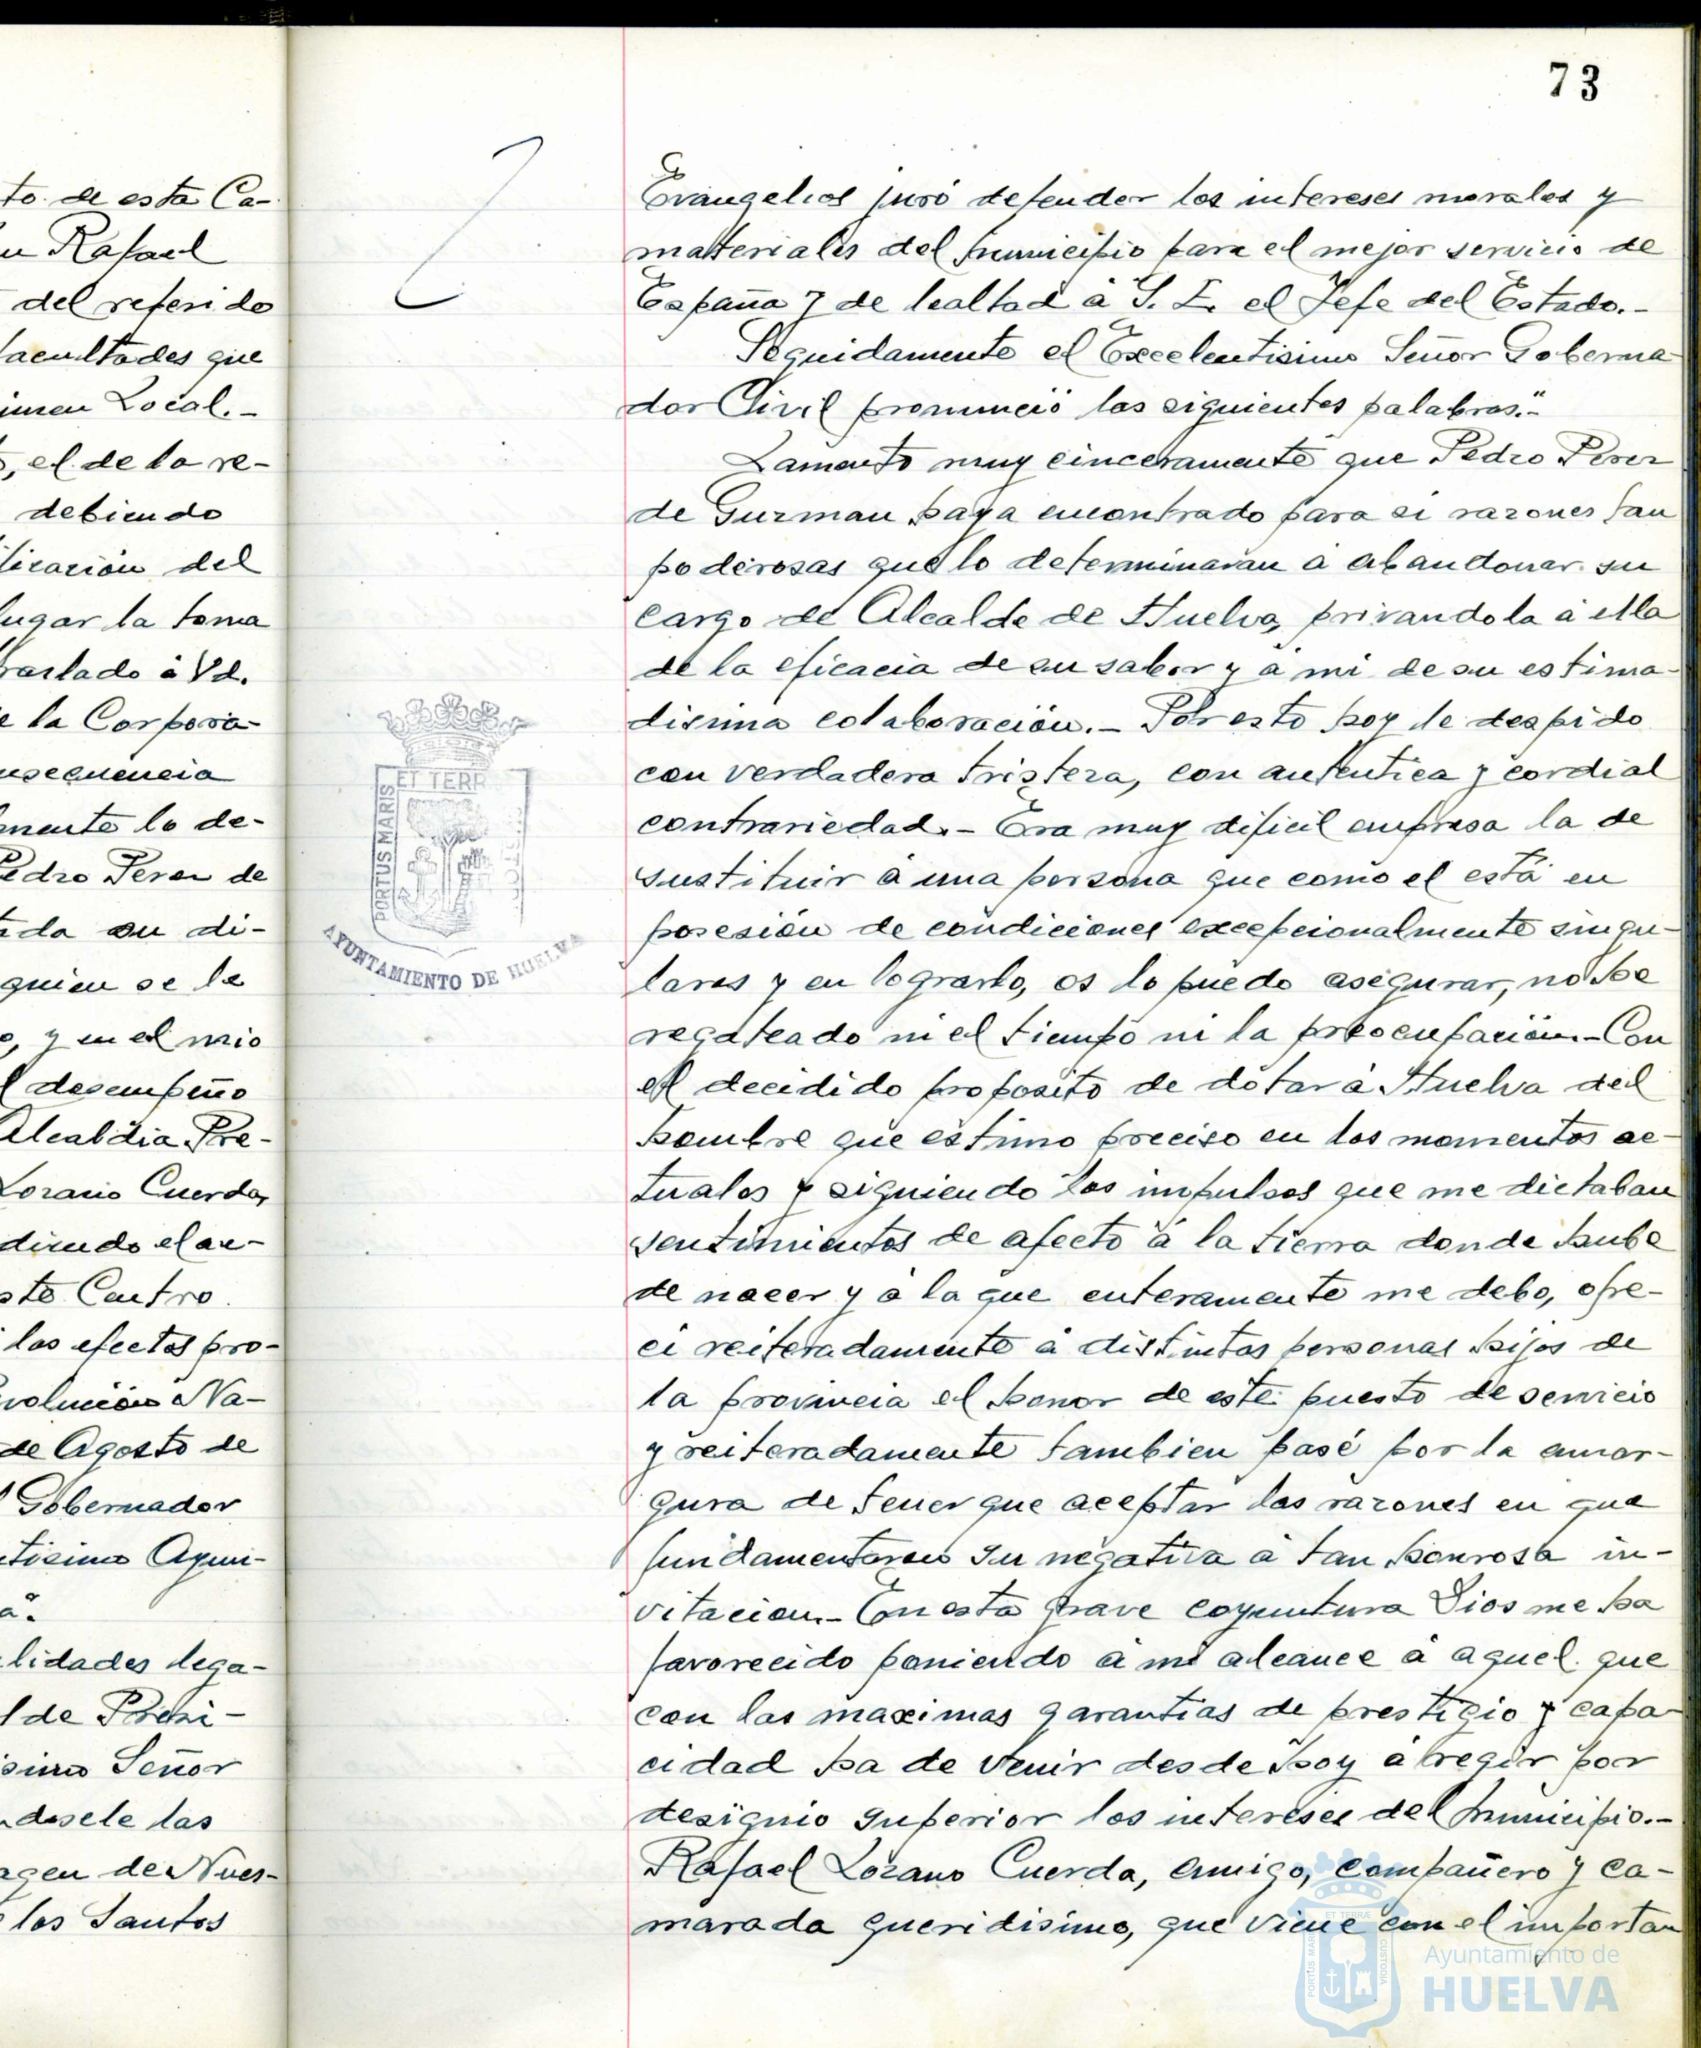 to de esta Ca-
Rafael
del referido
facultades que
imen Local.-
, el de la re-
debiendo
ficación del
lugar la toma
traslado á Vd.
e la Corpora-
nsecuencia
mente lo de-
Pedro Perez de
da su di-
quien se le
o, y en el mio
l desempeño
Alcaldia Pre-
Lozano Cuerda,
diendo el ac-
ste Centro.
los efectos pro-
volución Na-
de Agosto de
l Gobernador
tisimo Ayun-
a".
lidades lega-
lde Presi-
simo Señor
ndosele las
agen de Nues-
los Santos
73
Evangelios juró defender los intereses morales y
materiales del Municipio para el mejor servicio de
España y de lealtad á S. E. el Jefe del Estado.-
Seguidamente el Excelentisimo Señor Goberna-
dor Civil pronunció las siguientes palabras."-
Lamento muy cinceramente que Pedro Perez
de Guzman haya encontrado para si razones tan
poderosas que lo determinaran á abandonar su
cargo de Alcalde de Huelva, privandola á ella
de la eficacia de su sabor y á mi de su estima-
disima colaboración.- Por esto hoy le despido
con verdadera tristeza, con autentica y cordial
contrariedad.- Era muy dificil empresa la de
sustituir á una persona que como el está en
posesión de condiciones excepcionalmente singu-
lares y en lograrlo, os lo puedo asegurar, no he
regateado ni el tiempo ni la preocupación.- Con
el decidido proposito de dotar á Huelva del
hombre que estimo preciso en los momentos ac-
tuales y siguiendo los impulsos que me dictaban
sentimientos de afecto á la tierra donde hube
de nacer y á la que enteramente me debo, ofre-
ci reiteradamente á distintas personas hijos de
la provincia el honor de este puesto de servicio
y reiteradamente tambien pasé por la amar-
gura de tener que aceptar las razones en que
fundamentaron su negativa á tan honrosa in-
vitacion.- En esta grave coyuntura Dios me ha
favorecido poniendo á mi alcance á aquel que
con las maximas garantias de prestigio y capa-
cidad ha de venir desde hoy á regir por
designio superior los intereses del Municipio.-
Rafael Lozano Cuerda, amigo, compañero y ca-
marada queridisimo, que viene con el importan
ET TERR
PORTUS MARIS
CUSTO
AYUNTAMIENTO DE HUELVA
ET TERRÆ
PORTUS MARIS
CUSTODIA
Ayuntamiento de
HUELVA